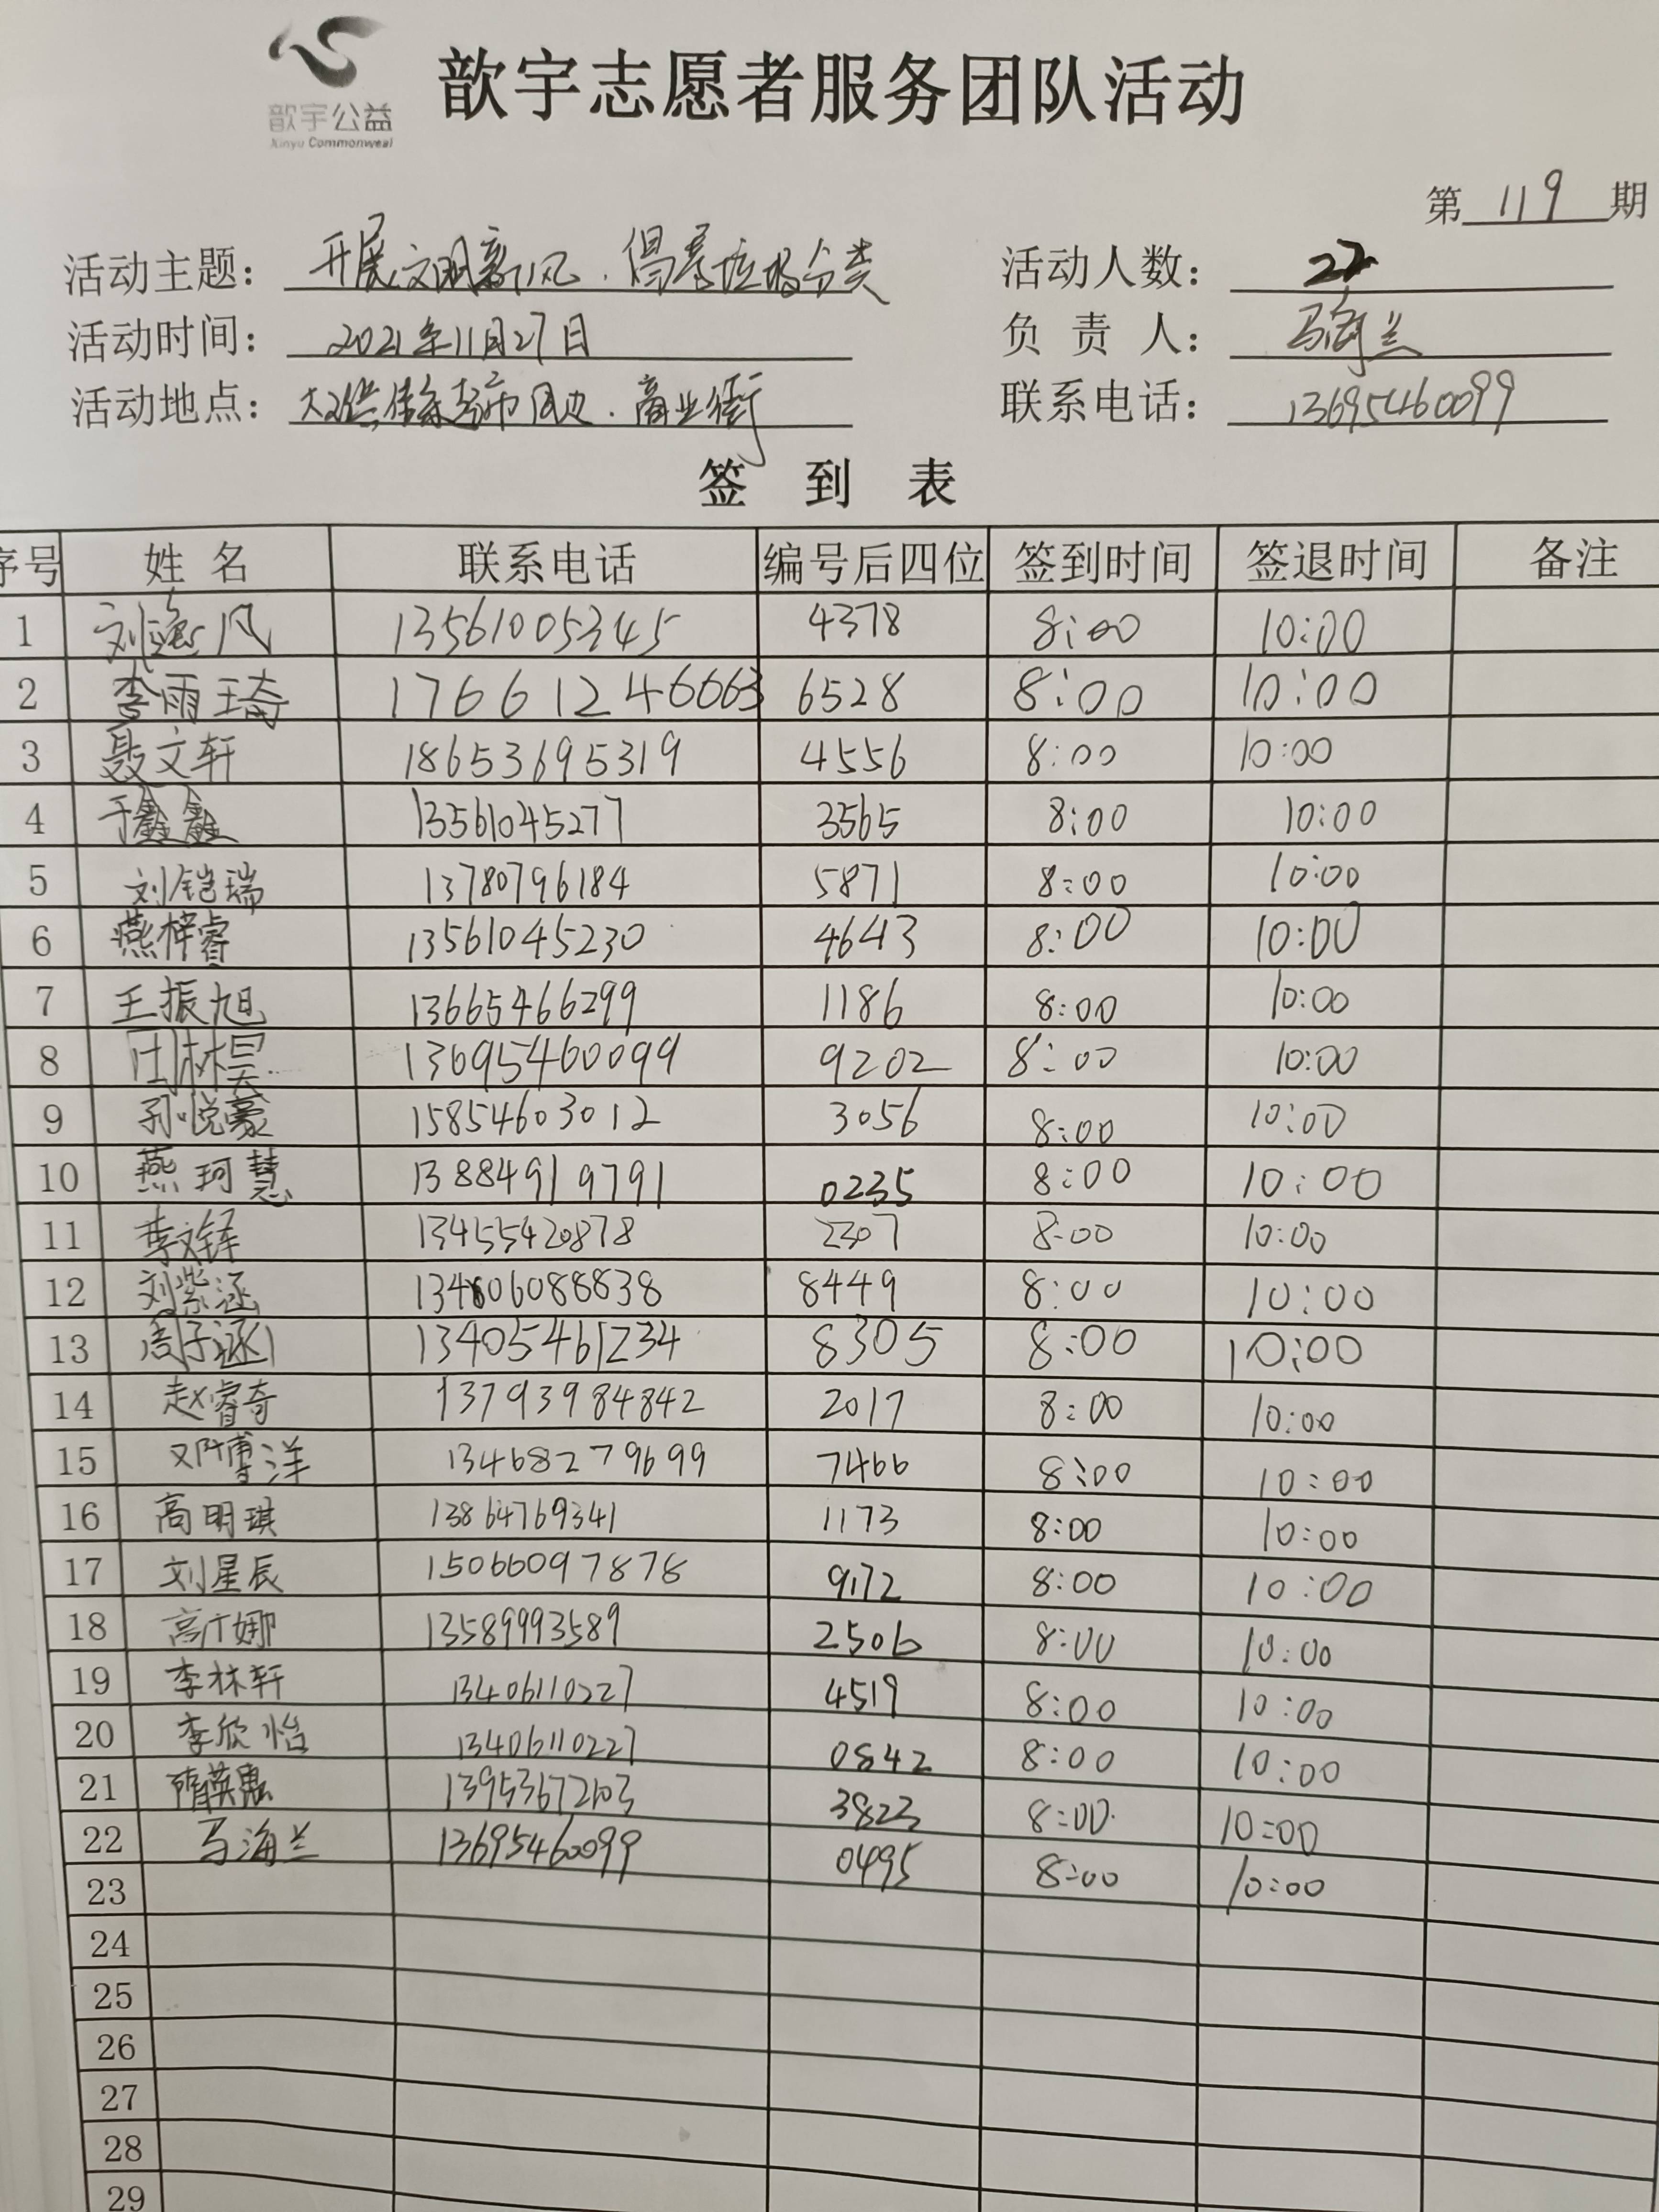 歆宇公益
Xinyu Commonweal
歆宇志愿者服务团队活动
第 119 期
活动主题: 开展文明新风.倡导垃圾分类 活动人数: 22
活动时间: 2021年11月27日 负责人: 马海兰
活动地点: 超市周边.商业街 联系电话: 13695460099
签到表
序号 姓名 联系电话 编号后四位 签到时间 签退时间 备注
1 刘逸风 13561005345 4378 8:00 10:00
2 李雨琦 17661246663 6528 8:00 10:00
3 聂文轩 18653695319 4556 8:00 10:00
4 于鑫鑫 13561045277 3565 8:00 10:00
5 刘铠瑞 13780796184 5871 8:00 10:00
6 燕梓睿 13561045230 4643 8:00 10:00
7 王振旭 13665466299 1186 8:00 10:00
8 林昊 13695460099 9202 8:00 10:00
9 孙悦豪 15854603012 3056 8:00 10:00
10 燕珂慧 13884919791 0235 8:00 10:00
11 李文铎 13455420878 2307 8:00 10:00
12 刘紫涵 8449 8:00 10:00
13 周子涵 13405461234 8305 8:00 10:00
14 赵睿奇 13793984842 2017 8:00 10:00
15 邓博洋 13468279699 7466 8:00 10:00
16 高明琪 13864769341 1173 8:00 10:00
17 刘星辰 15066097878 9172 8:00 10:00
18 高娜 13589993589 2506 8:00 10:00
19 李林轩 13406110227 4519 8:00 10:00
20 李欣怡 13406110227 0842 8:00 10:00
21 隋英惠 13953672103 3823 8:00 10:00
22 马海兰 13695460099 0495 8:00 10:00
23
24
25
26
27
28
29